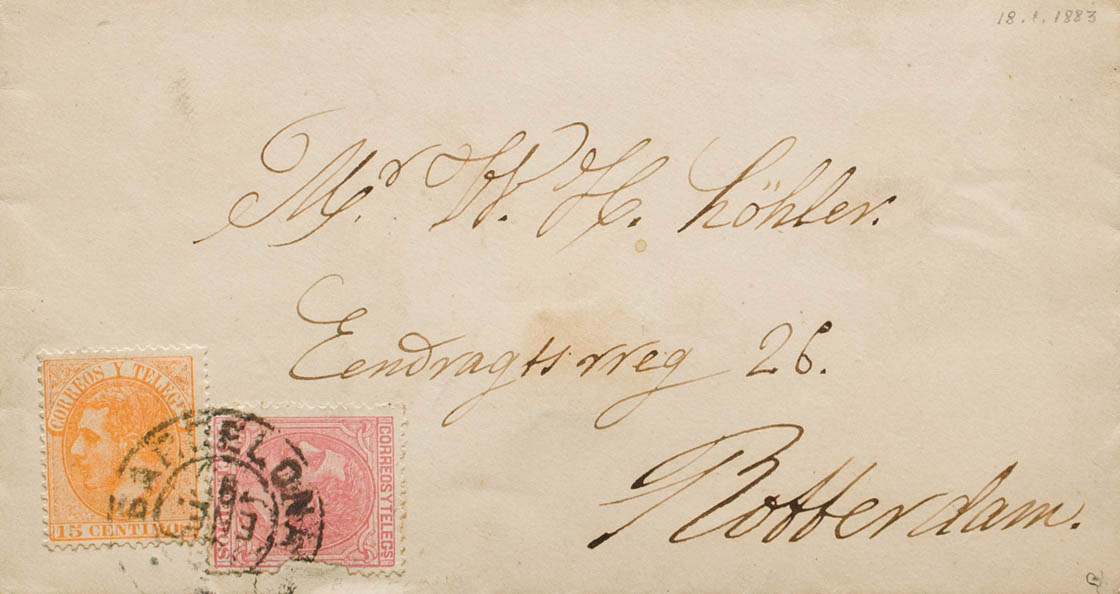 18.1.1883
Mr. W. H. Köhler.
Eendragtsweg 26.
Rotterdam.
CORREOS Y TELEGS
15 CENTIMOS
BARCELONA
CORREOS Y TELEGS